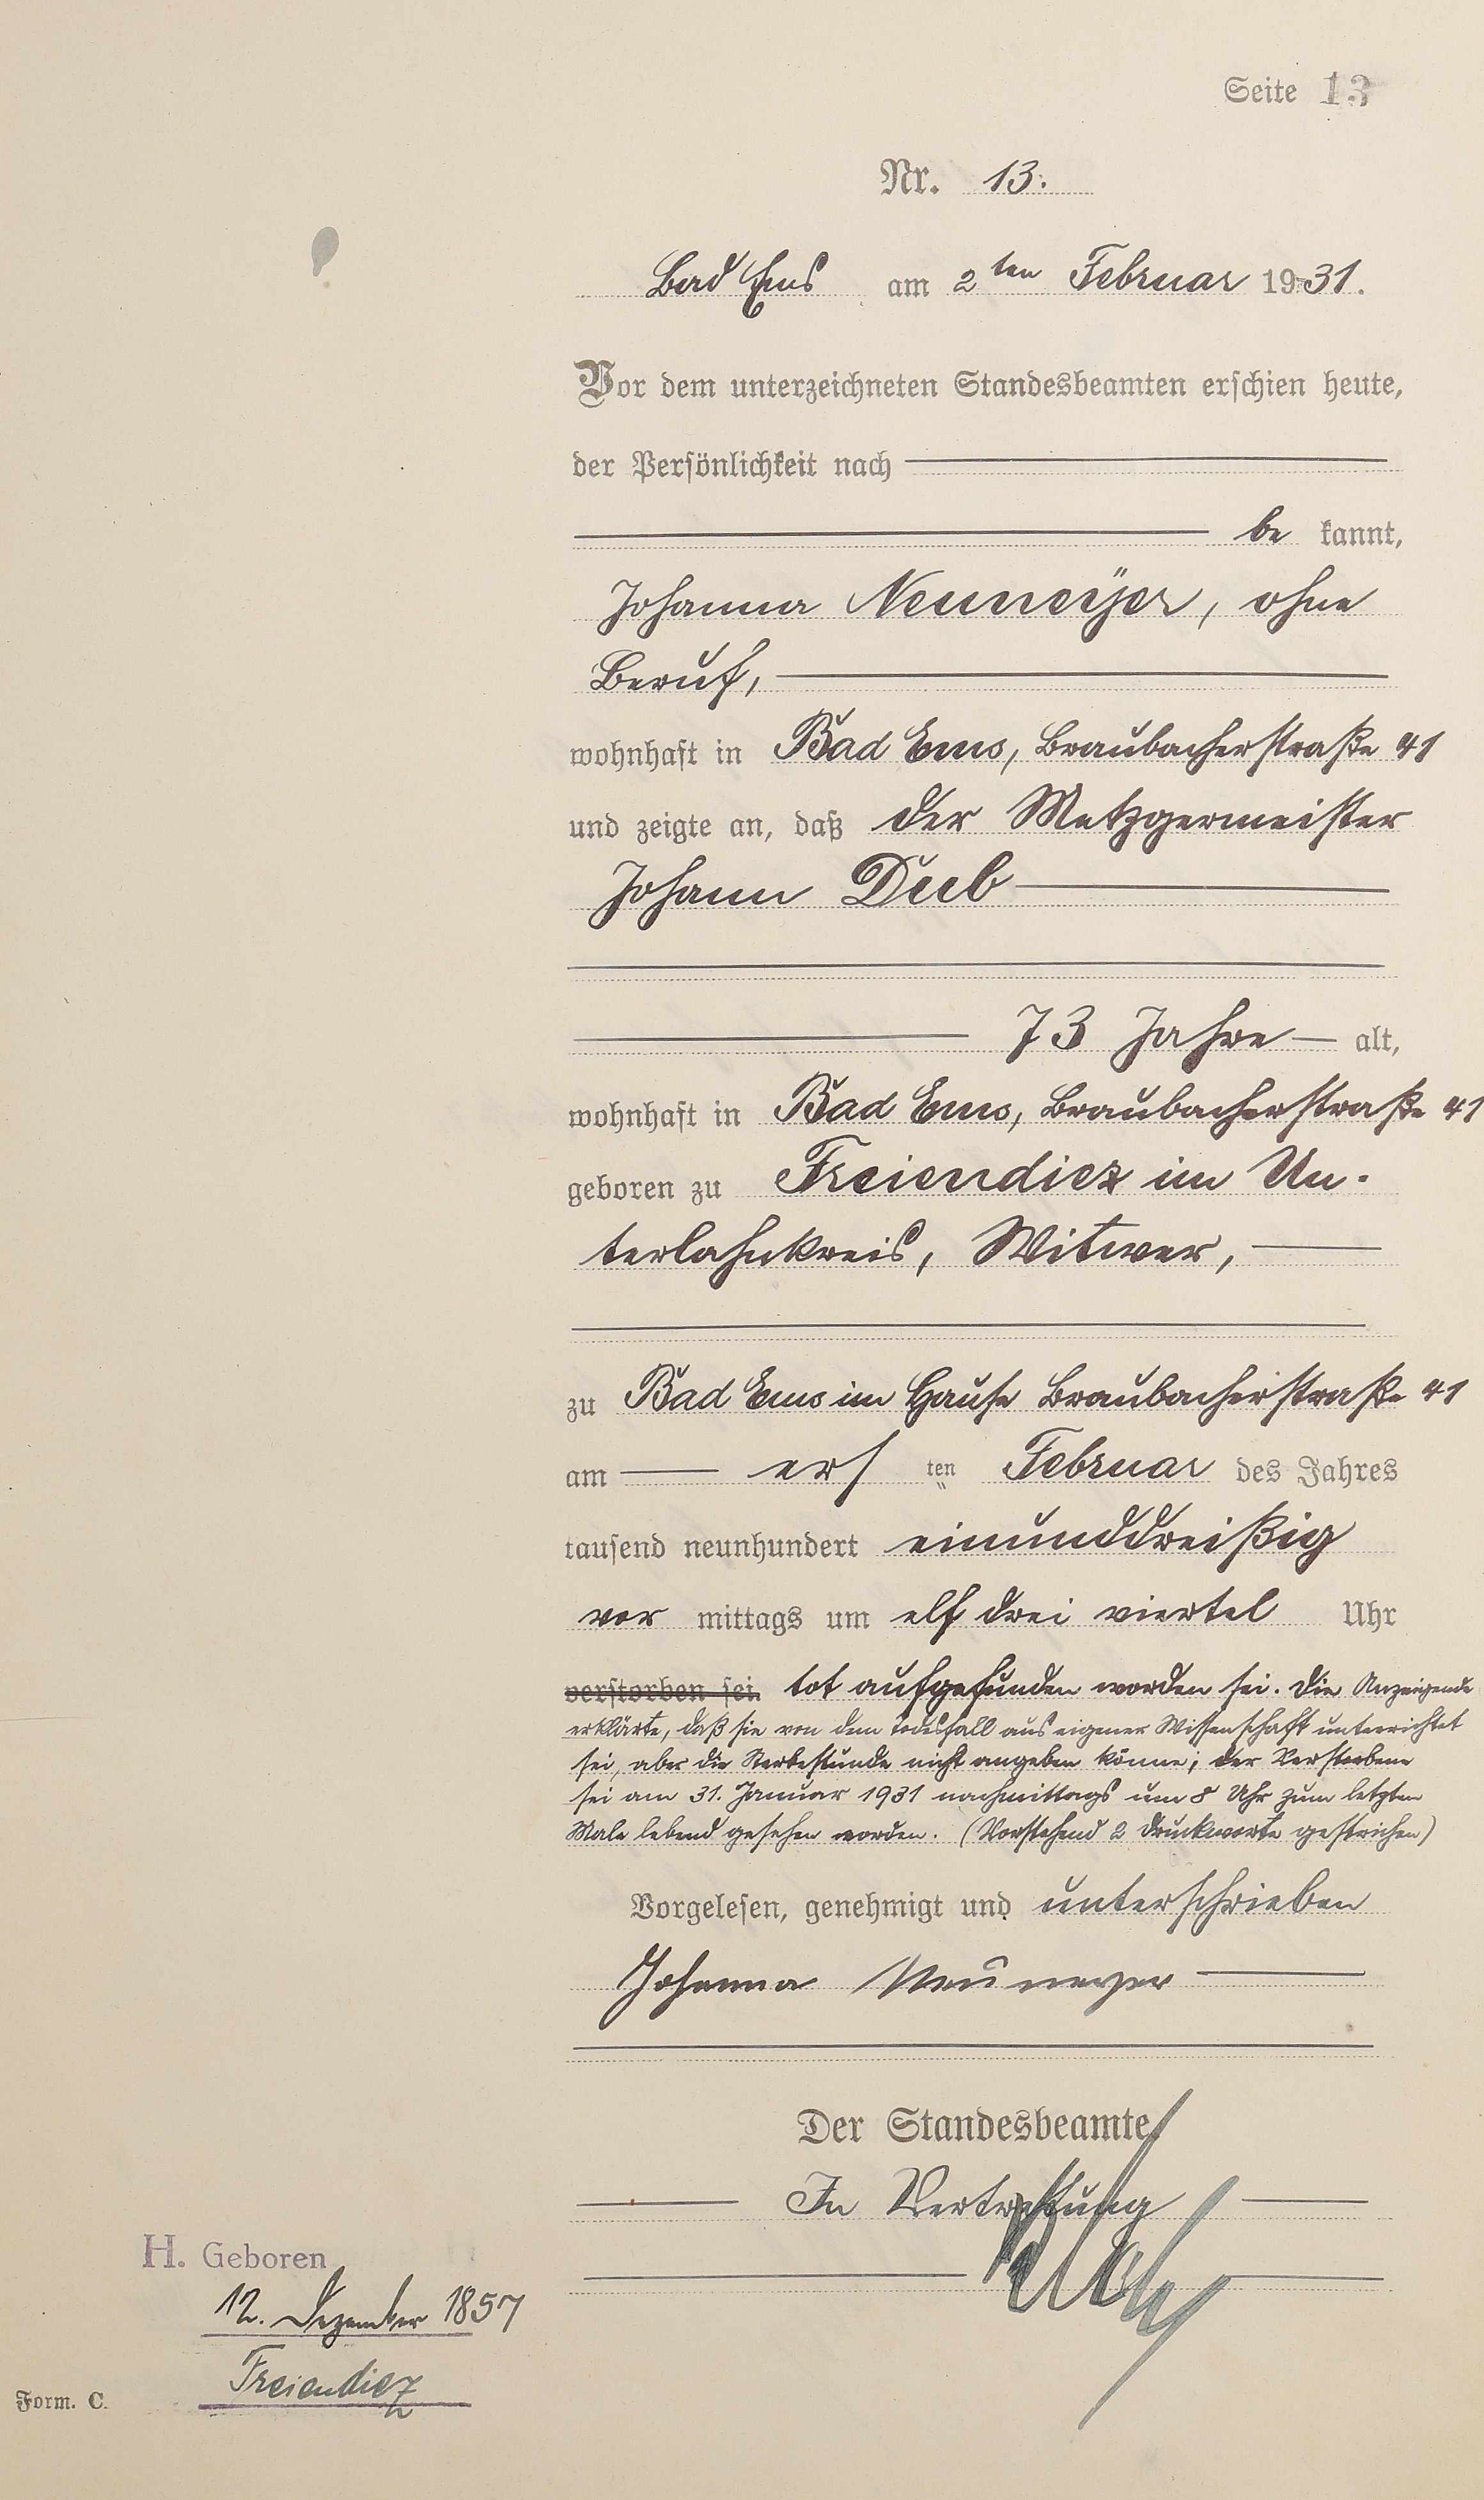 Seite 13
Nr. 13.
Bad Ems am 2ten Februar 1931.
Vor dem unterzeichneten Standesbeamten erschien heute,
der Persönlichkeit nach
be kannt,
Johanna Neumeÿer, ohne
Beruf,
wohnhaft in Bad Ems, Braubacherstraße 41
und zeigte an, daß der Metzgermeister
Johann Deeb
73 Jahre alt,
wohnhaft in Bad Ems, Braubacherstraße 41
geboren zu Freiendiez im Un-
terlahnkreis, Witwer,
zu Bad Ems im Hause Braubacherstraße 41
am ersten Februar des Jahres
tausend neunhundert einunddreißig
vor mittags um elf drei viertel Uhr
verstorben sei. tot aufgefunden worden sei. Die Anzeigende
erklärte, daß sie von dem Todesfall aus eigener Wissenschaft unterrichtet
sei, aber die Sterbestunde nicht angeben könne; der Verstorbene
sei am 31. Januar 1931 nachmittags um 8 Uhr zum letzten
Male lebend gesehen worden. (Vorstehend 2 Druckworte gestrichen)
Vorgelesen, genehmigt und unterschrieben
Johanna Neumeyer
Der Standesbeamte.
In Vertretung
H. Geboren
12. Dezember 1857
Freiendiez
Form. C.